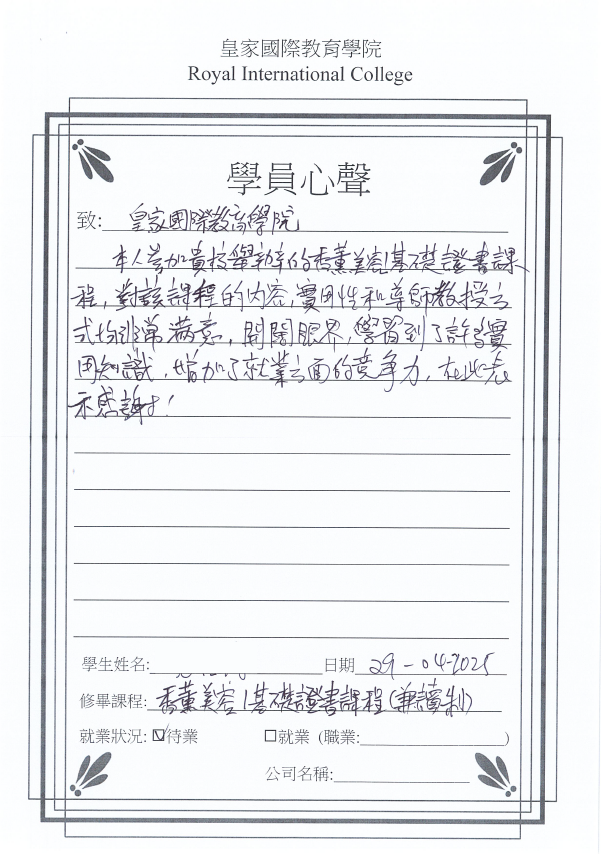 皇家國際教育學院
Royal International College
學員心聲
致: 皇家國際教育學院
本人參加貴校舉辦的香薰美容基礎證書課
程，對該課程的內容，實用性和導師教授方
式均非常滿意，開闊眼界，學習到了許多實
用知識，增加了就業方面的競爭力，在此表
示感謝！
學生姓名:
日期 29-04-2025
修畢課程: 香薰美容基礎證書課程(兼讀制)
就業狀況: ☑待業 ☐就業 (職業: )
公司名稱: